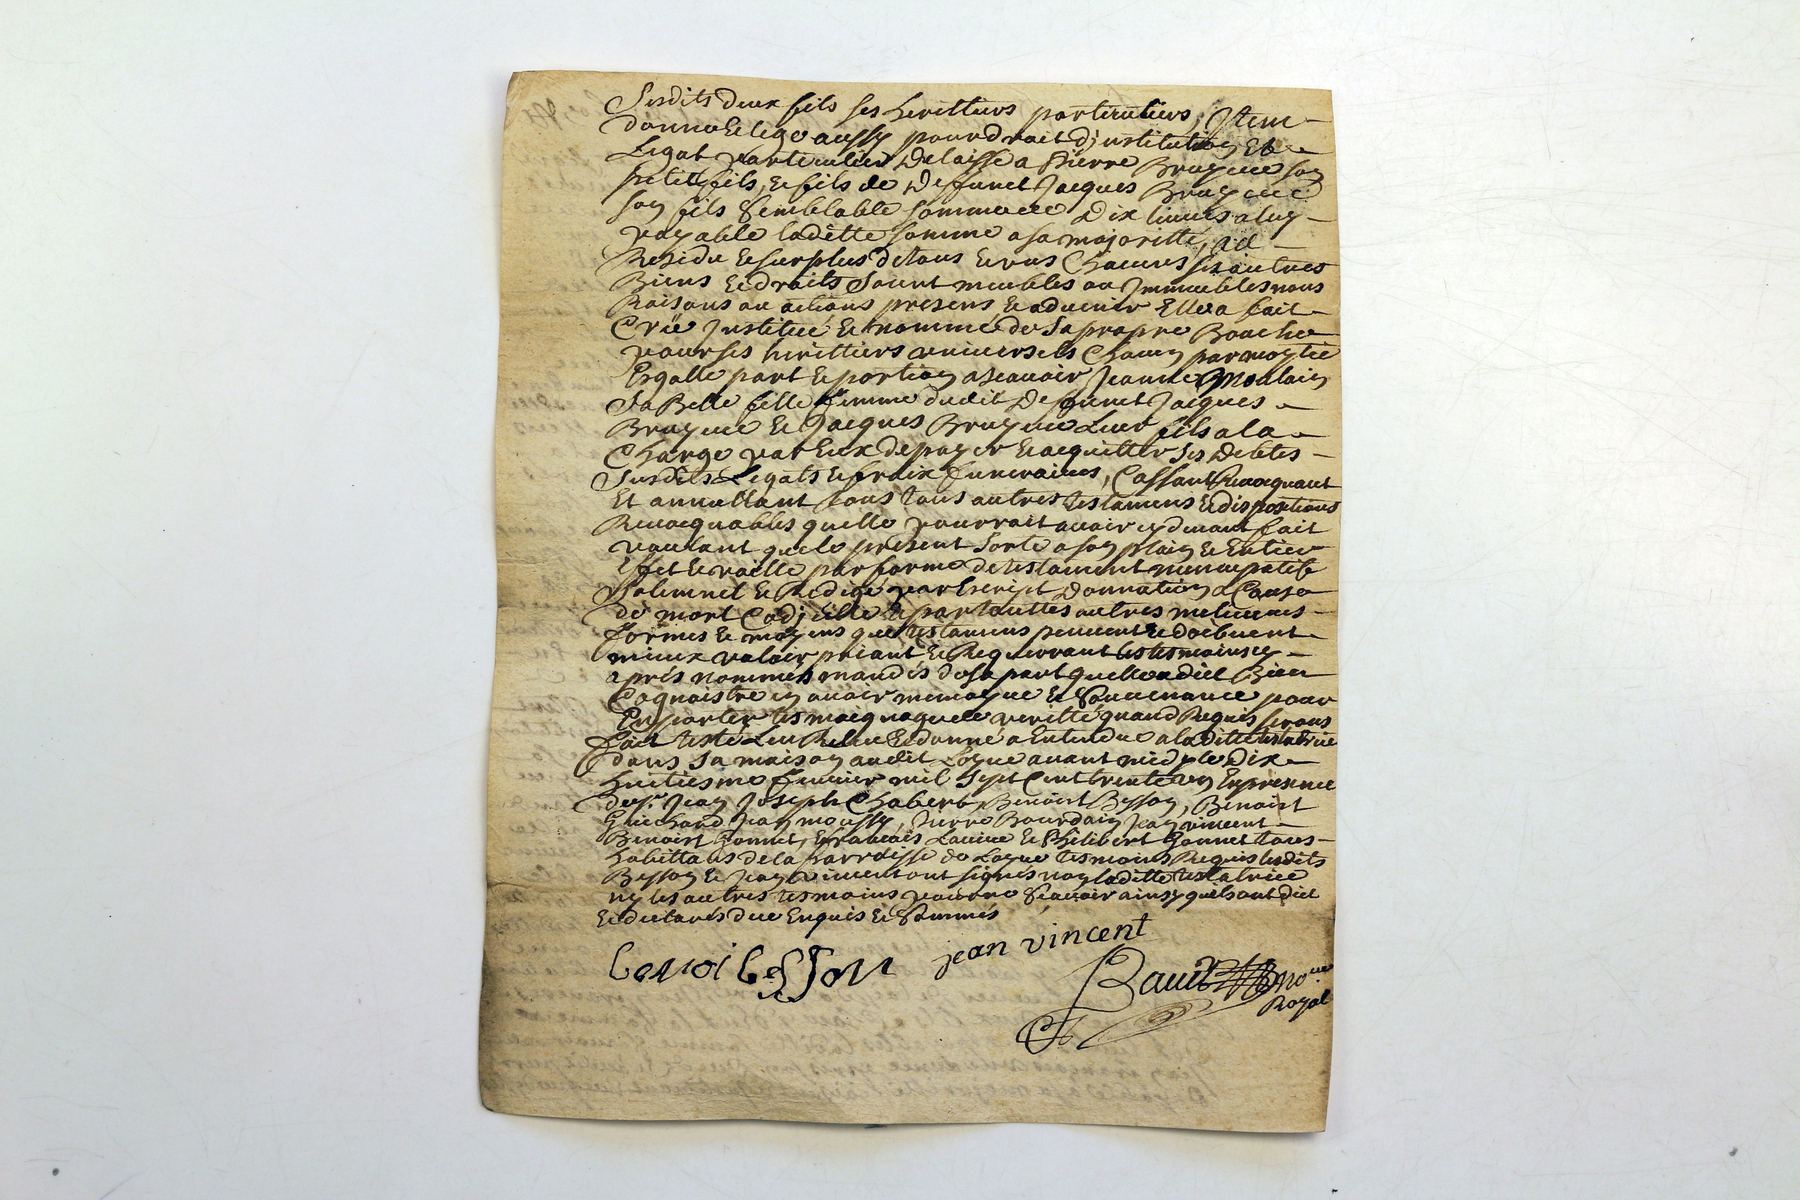 Susdits deux fils ses herittiers particuliers, Item
donne et legue aussy pour droit d'institution et
Legat particulier delaissé a Pierre Bruyere son
petit fils, et fils de deffunct Jacques Bruyere
son fils semblable somme de dix livres a luy
payable ladette somme a sa majoritté, au
Residu et surplus de tous et uns chacuns ses autres
Biens et droits soient meubles ou Immeubles noms
Raisons ou actions presens et advenir Elle a fait
Créé Institué et nommé de sa propre Bouche
pour ses herittiers universels chacun par moytié
Esgalle part et portion a scavoir Jeanne Moulain
sa Belle fille femme dudit deffunct Jacques
Bruyere et Jacques Bruyere leur fils a la
Charge par Eux de payer et acquitter ses debtes
susdits Legats et fraix funeraires, Cassant Revoquant
Et annullant tous autres testamens et dispositions
Revocquables quelle pourroit avoir cy devant fait
voulant que le present sorte a son plain et Entier
Effet et vaille par forme de testament noncupatif
solemnel et Redigé par Escript donnation a Cause
de mort Codicille et par touttes autres meilleures
formes et moyens que testamens peuvent et doibvent
mieux valoir, priant et Requerrant les tesmoins cy
aprés nommés mandés de sa part quelle a dict Bien
Cognoistre en avoir memoyre et souvenance pour
En porter tesmoignage de veritté quand Requis seront
fait testé leu Releu et donné a Entendre a laditte testatrice
dans sa maison audit Loyre avant midy le dix
huitiesme fevrier mil sept cent trente un En presence
de sr. Jean Joseph Chabert, Benoist Besson, Benoist
Guichard Jean moussy, Pierre Bourdain Jean vincent
Benoist Bonnet, francois Lavine et Philibert Bonnet tous
habittans de la parroisse de Loyre tesmoins Requis lesdits
Besson et Jean vincent ont signés non laditte testatrice
ny les autres tesmoins pour ne scavoir ainsy quils ont dict
et declarés de ce Enquis et sommés
benoi besson
jean vincent
no.re
Royal